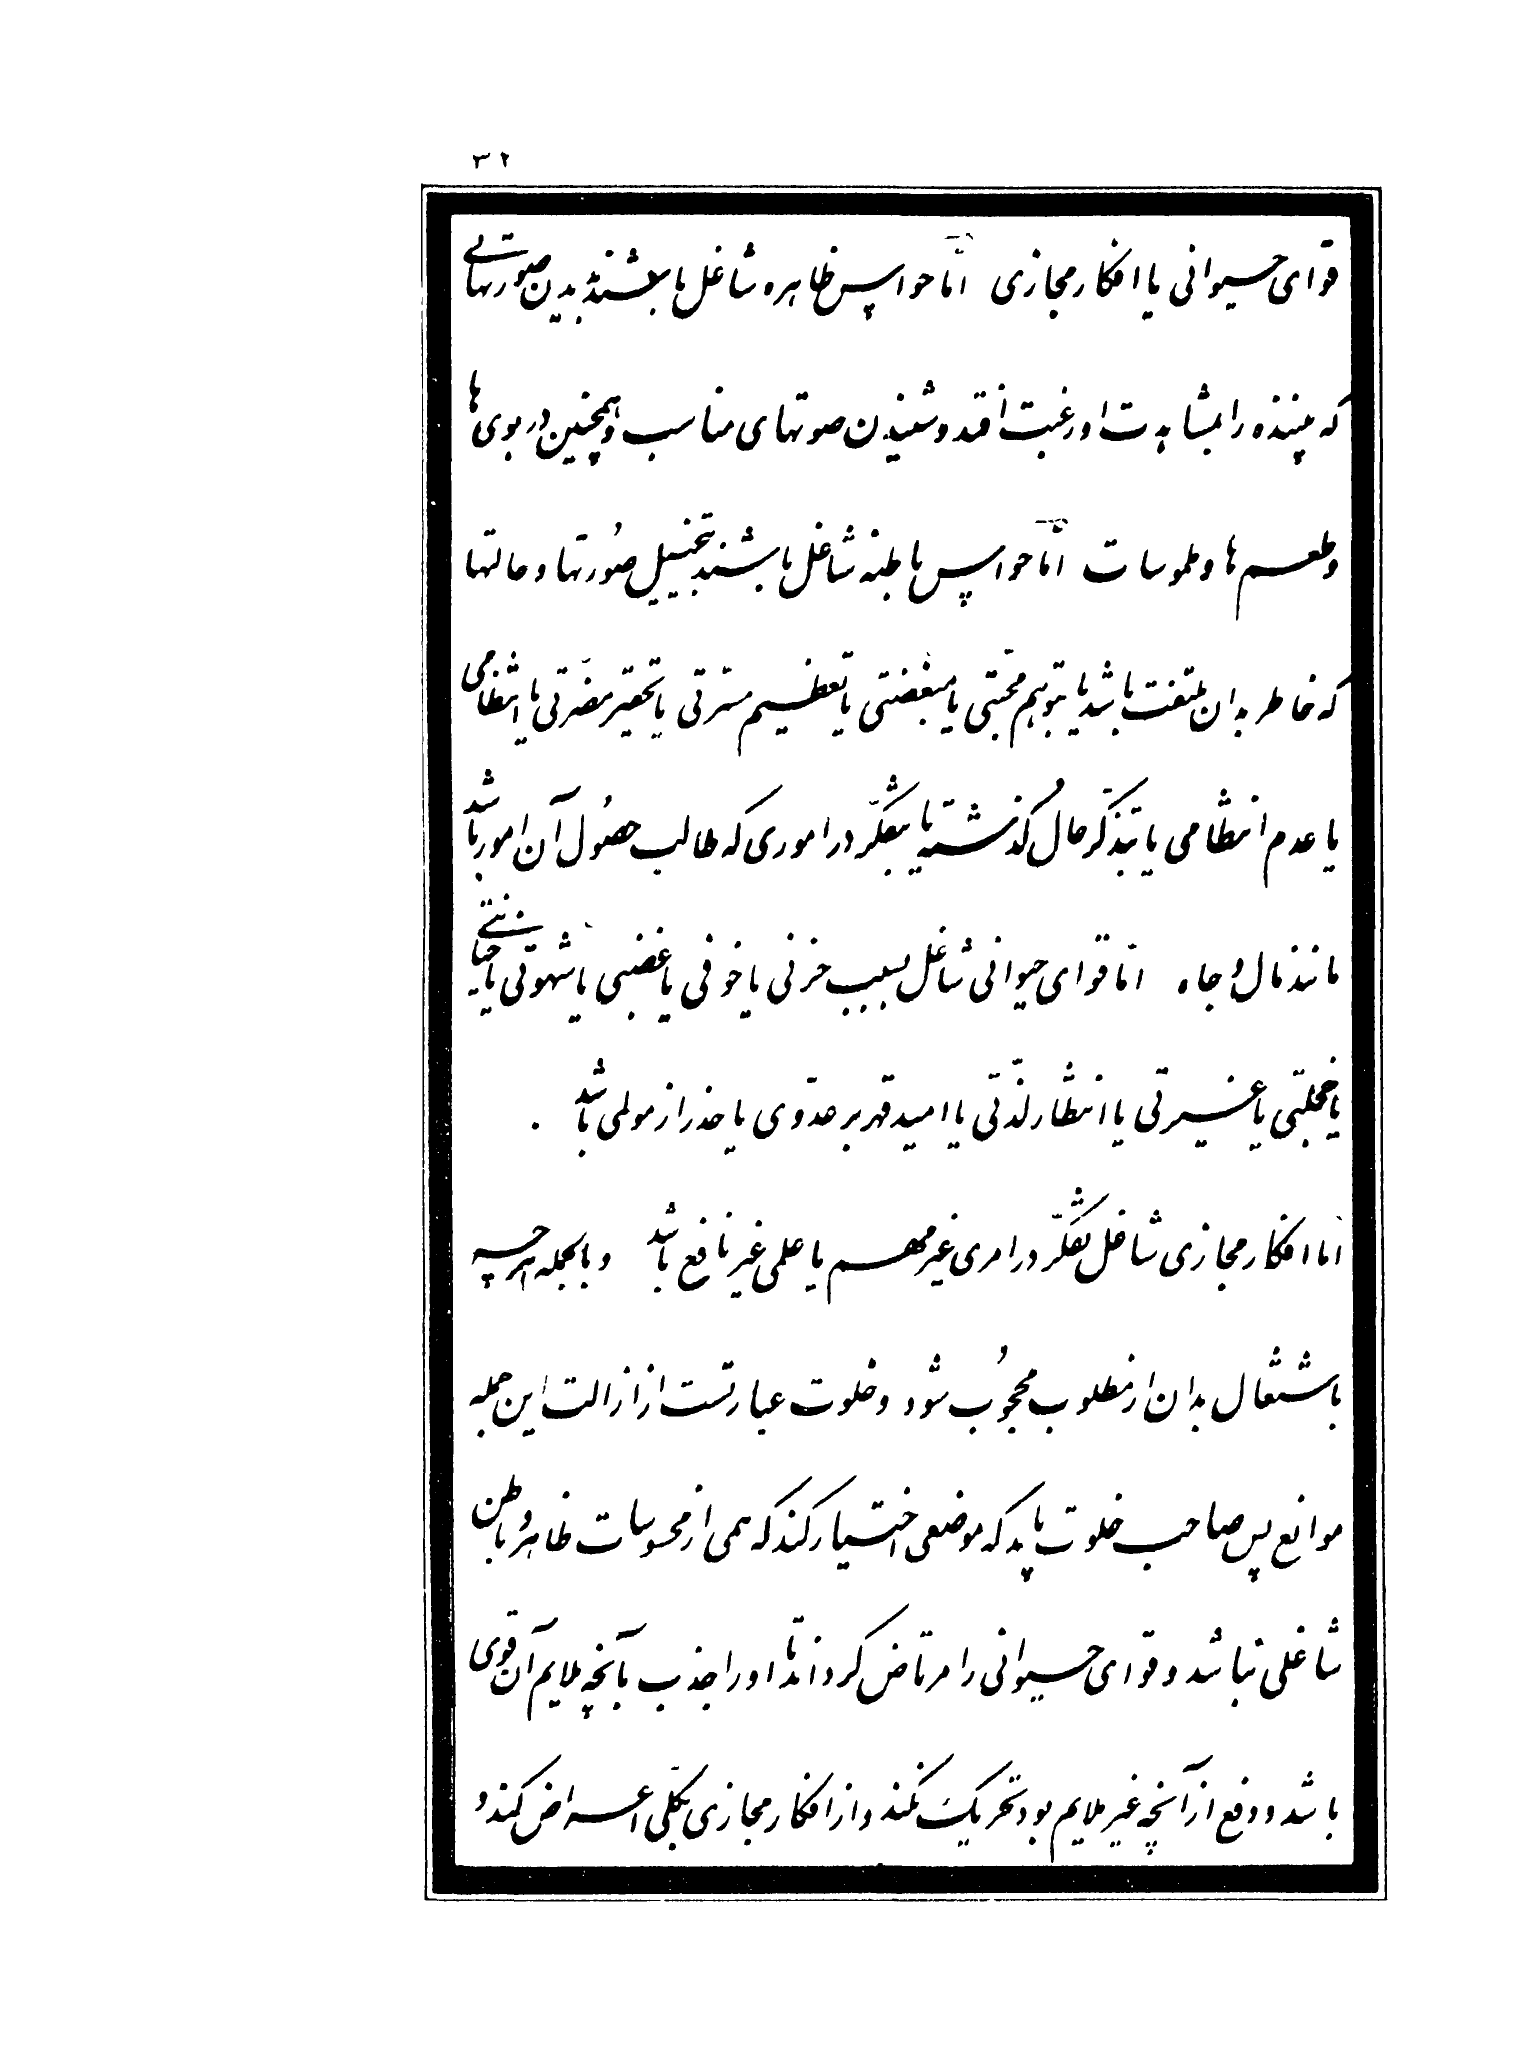 ۳۲
قوای حیوانی یا افکار مجازی امّا حواس ظاهره شاغل باشند بدیدن صورتهایی
که بیننده را بمشاهدت او رغبت افتد و شنیدن صوتهای مناسب و همچنین در بوی ها
و طعم ها و ملموسات امّا حواس باطنه شاغل باشند بتخییل صُورتها و حالتها
که خاطر بدان ملتفت باشد یا بتوهم محبّتی یا مبغضتی یا تعظیم مسرّتی یا تحقیر مضرّتی یا انتظامی
یا عدم انتظامی یا بتذکّر حال گذشته یا بتفکّر در اموری که طالب حصُول آن امور باشد
مانند مال و جاه امّا قوای حیوانی شاغل بسبب حزنی یا خوفی یا غضبی یا شهوتی یا خیانتی
یا خجلتی یا غیرتی یا انتظار لذّتی یا امید قهر بر عدّوی یا حذر از مولمی باشد .
امّا افکار مجازی شاغل بتفکّر در امری غیر مهم یا علمی غیر نافع باشد و بالجمله هر چه
باشتغال بدان از مطلوب محجُوب شود و خلوت عبارتست از ازالت این جمله
موانع پس صاحب خلوت باید که موضعی اختیار کند که همی از محسوسات ظاهر و باطن
شاغلی نباشد و قوای حیوانی را مرتاض گرداند تا او را جذب بآنچه ملایم آن قوی
باشد و دفع از آنچه غیر ملایم بود تحریک نکند و از افکار مجازی بکلّی اعراض کند و